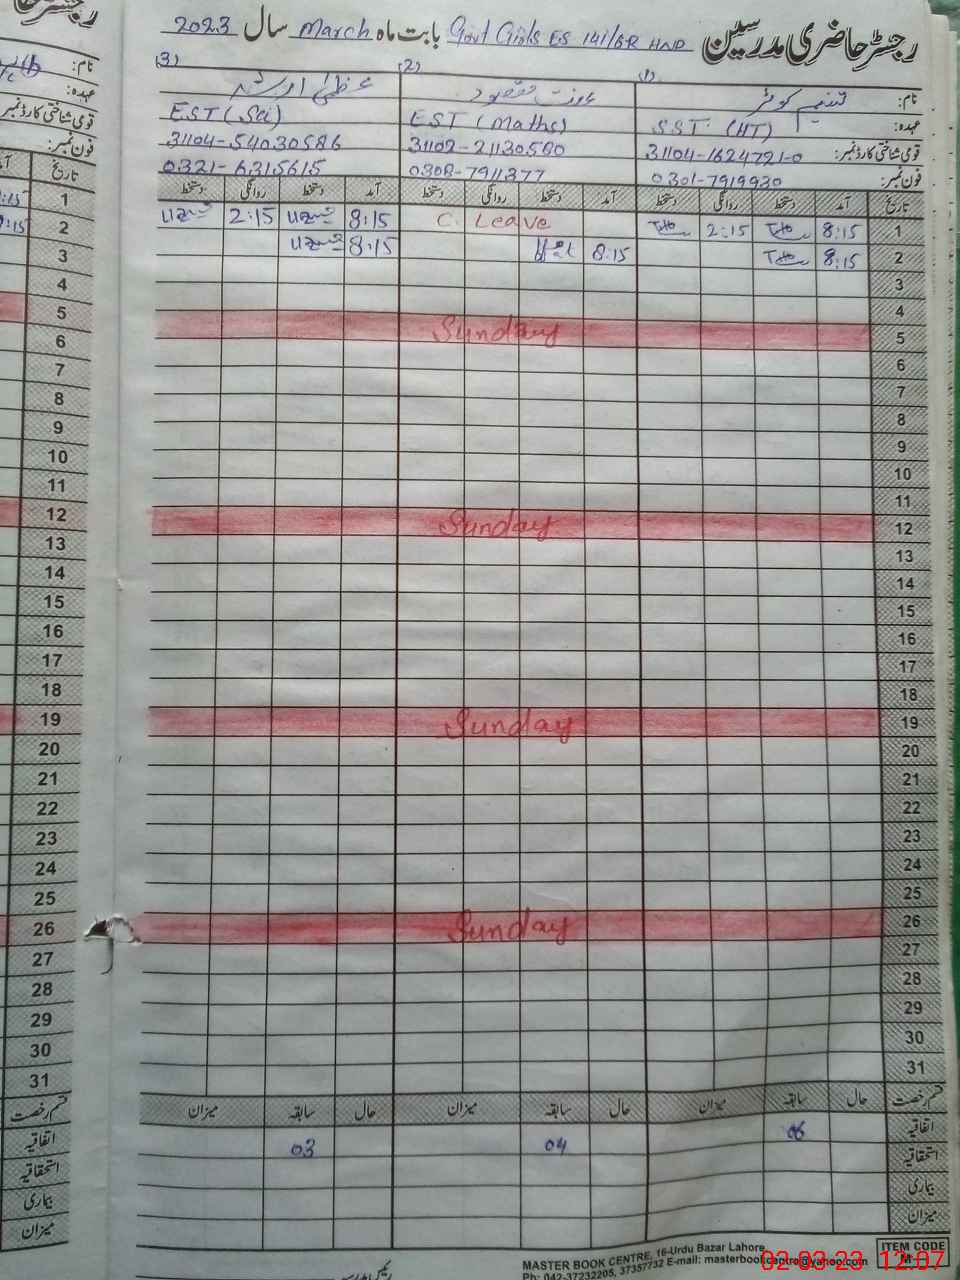 رجسٹر حاضری مدرسین Govt Girls ES 141/6R HND بابت ماہ March سال 2023
(1) (2) (3)
نام: تسنیم کوثر
عہدہ: SST (HT) EST (Maths) EST (Sci)
قومی شناختی کارڈ نمبر: 31104-1624721-0 31102-21130580 31104-54030586
فون نمبر: 0301-7919930 0308-7911377 0321-6315615
تاریخ آمد دستخط روانگی دستخط آمد دستخط روانگی دستخط آمد دستخط روانگی دستخط
1 8:15 2:15 C. Leave 8:15 2:15
2 8:15 8:15 8:15
3
4
5 Sunday
6
7
8
9
10
11
12 Sunday
13
14
15
16
17
18
19 Sunday
20
21
22
23
24
25
26 Sunday
27
28
29
30
31
قسم رخصت حال سابقہ میزان حال سابقہ میزان حال سابقہ میزان
اتفاقیہ 06 04 03
استحقاقیہ
بیماری
میزان
MASTER BOOK CENTRE, 16-Urdu Bazar Lahore
Ph: 042-37232205, 37357732 E-mail: masterbookcentre@yahoo.com
ITEM CODE
02 03 23 12:07
نام:
عہدہ:
قومی شناختی کارڈ نمبر:
فون نمبر:
تاریخ
1
2
3
4
5
6
7
8
9
10
11
12
13
14
15
16
17
18
19
20
21
22
23
24
25
26
27
28
29
30
31
قسم رخصت
اتفاقیہ
استحقاقیہ
بیماری
میزان